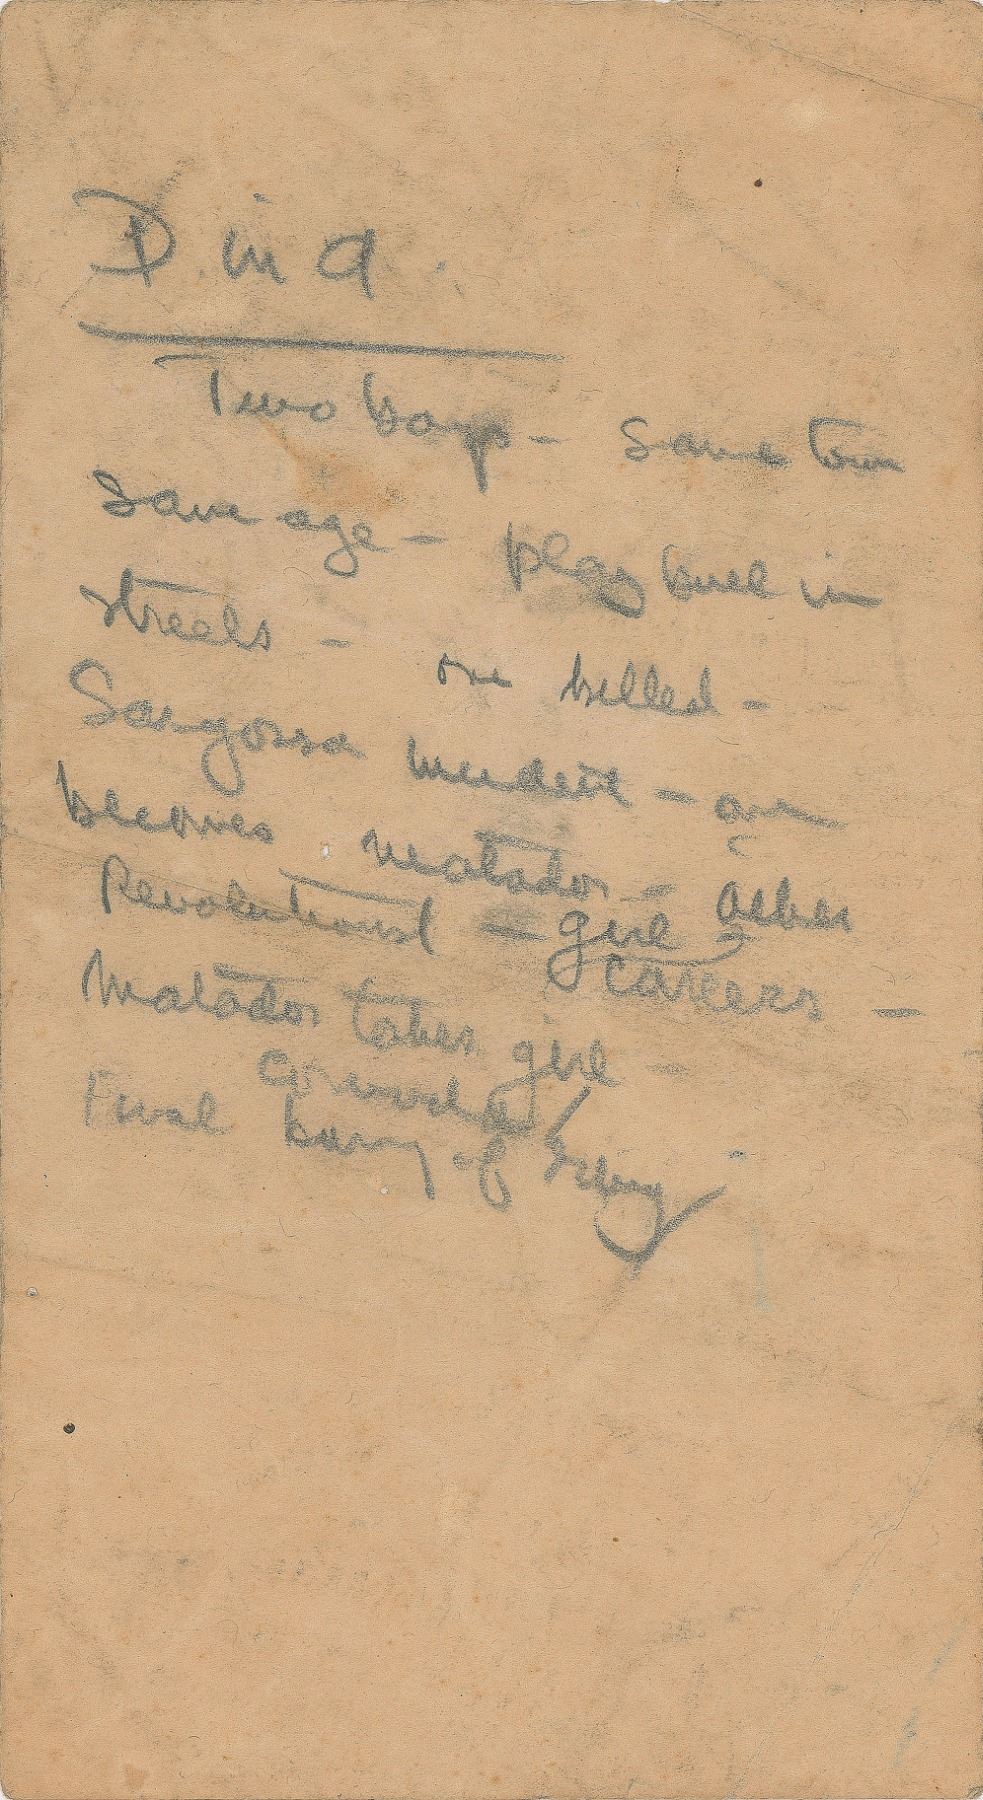 D. in a.
Two boys - same town
same age - play bull in
streets - one killed -
Saragossa - one
becomes matador - other
Revolutionist - girl
careers -
Matador takes girl -
Final
of